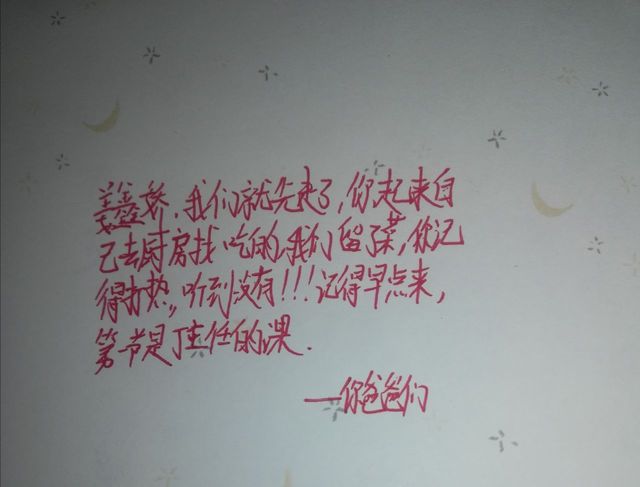 姜鑫娇，我们就先走了，你起来自
己去厨房找吃的，我们留了菜，你记
得打热，听到没有!!!记得早点来，
第一节是丁主任的课.
——你爸爸们